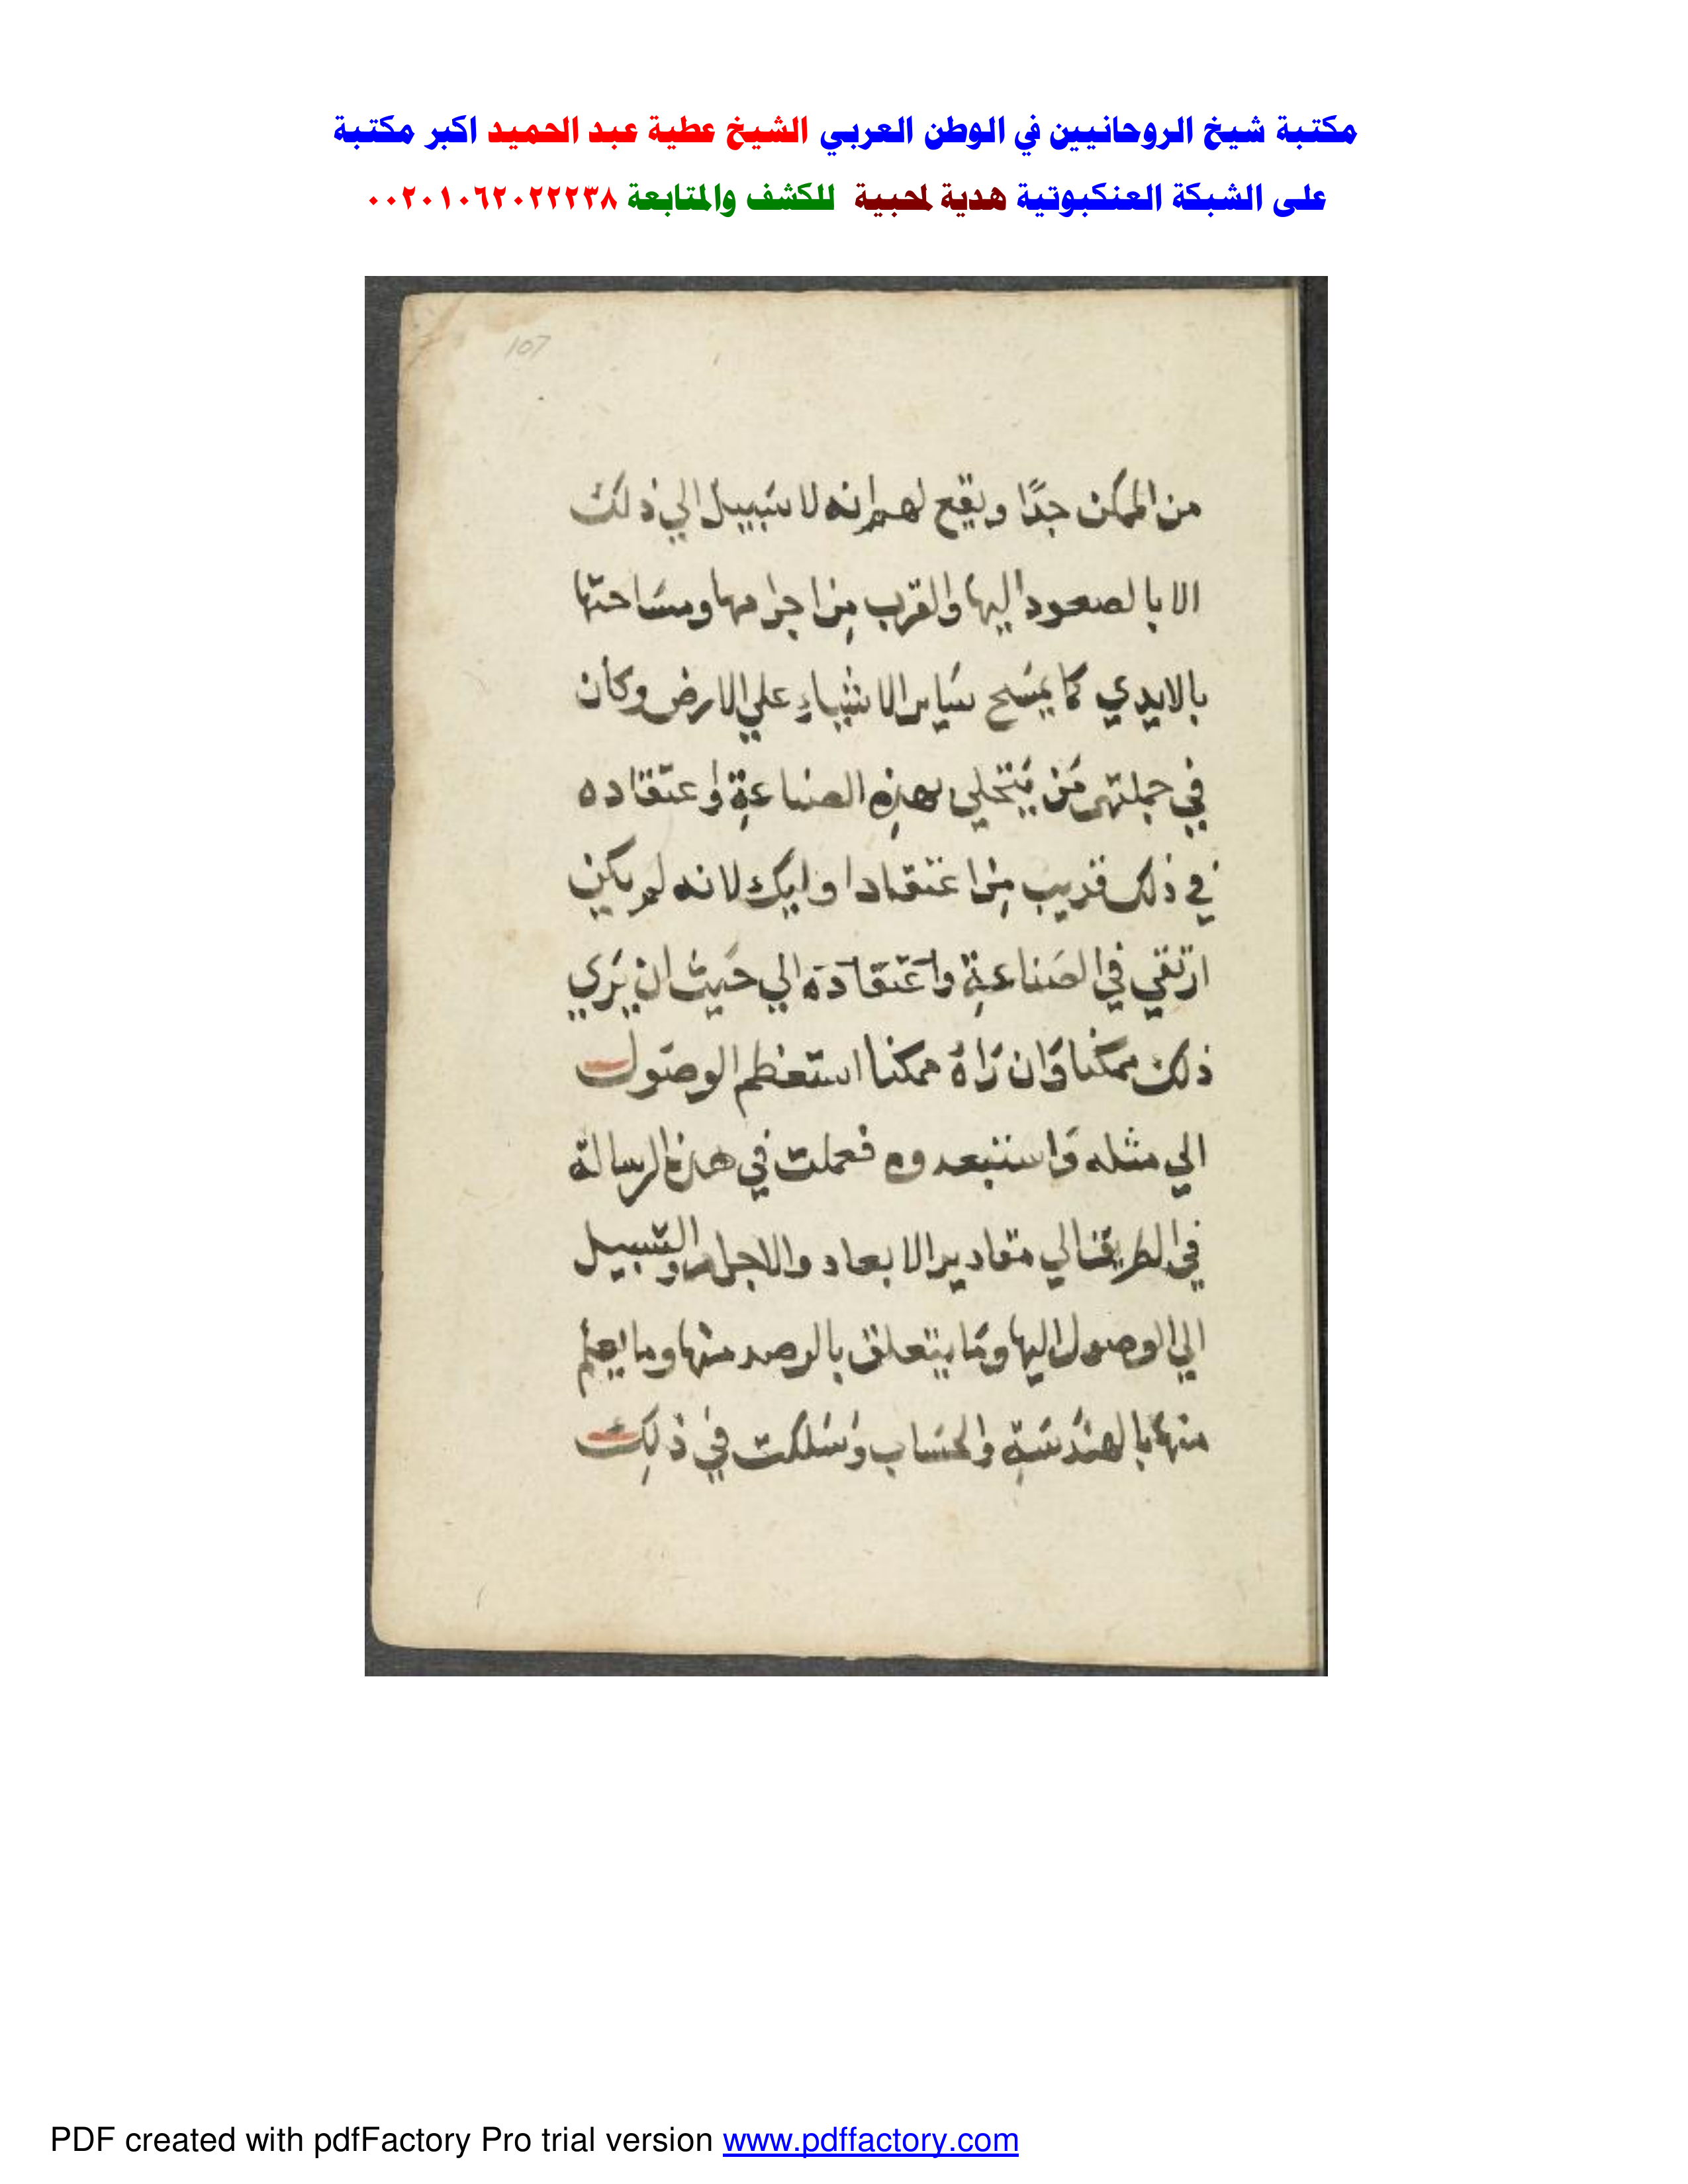 مكتبة شيخ الروحانيين في الوطن العربي الشيخ عطية عبد الحميد اكبر مكتبة
على الشبكة العنكبوتية هدية لمحبية للكشف والمتابعة ٠٠٢٠١٠٦٢٠٢٢٢٣٨
107
من الممكن جدًا ويقع لهم انه لا سبيل الي ذلك
الا بالصعود اليها والقرب من اجرامها ومساحتها
بالايدي كما يمسح ساير الاشياءِ علي الارض وكان
في جملتهم من يتحلي بهذه الصناعة واعتقاده
في ذلك قريب من اعتقاد اوليك لانه لم يكن
ارتقي في الصناعة واعتقاده الي حيث ان يري
ذلك ممكنا وان راه ممكنا استعظم الوصول
الي مثله واستبعدوه فعملت في هذه الرسالة
في الطريق الي مقادير الابعاد والاجرام والسبيل
الي الوصول اليها وما يتعلق بالرصد منها وما يعلم
منها بالهندسة والحساب وسلكت في ذلك
PDF created with pdfFactory Pro trial version www.pdffactory.com